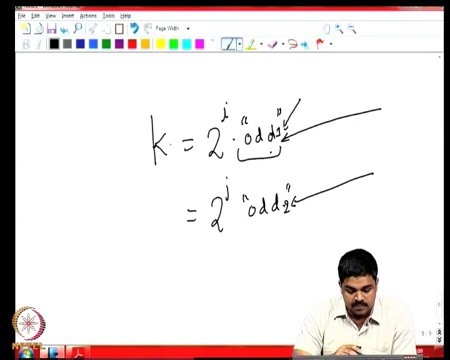 File Edit View Insert Actions Tools Help
Page Width
k = 2^i · "odd1"
= 2^j "odd2"
NPTEL